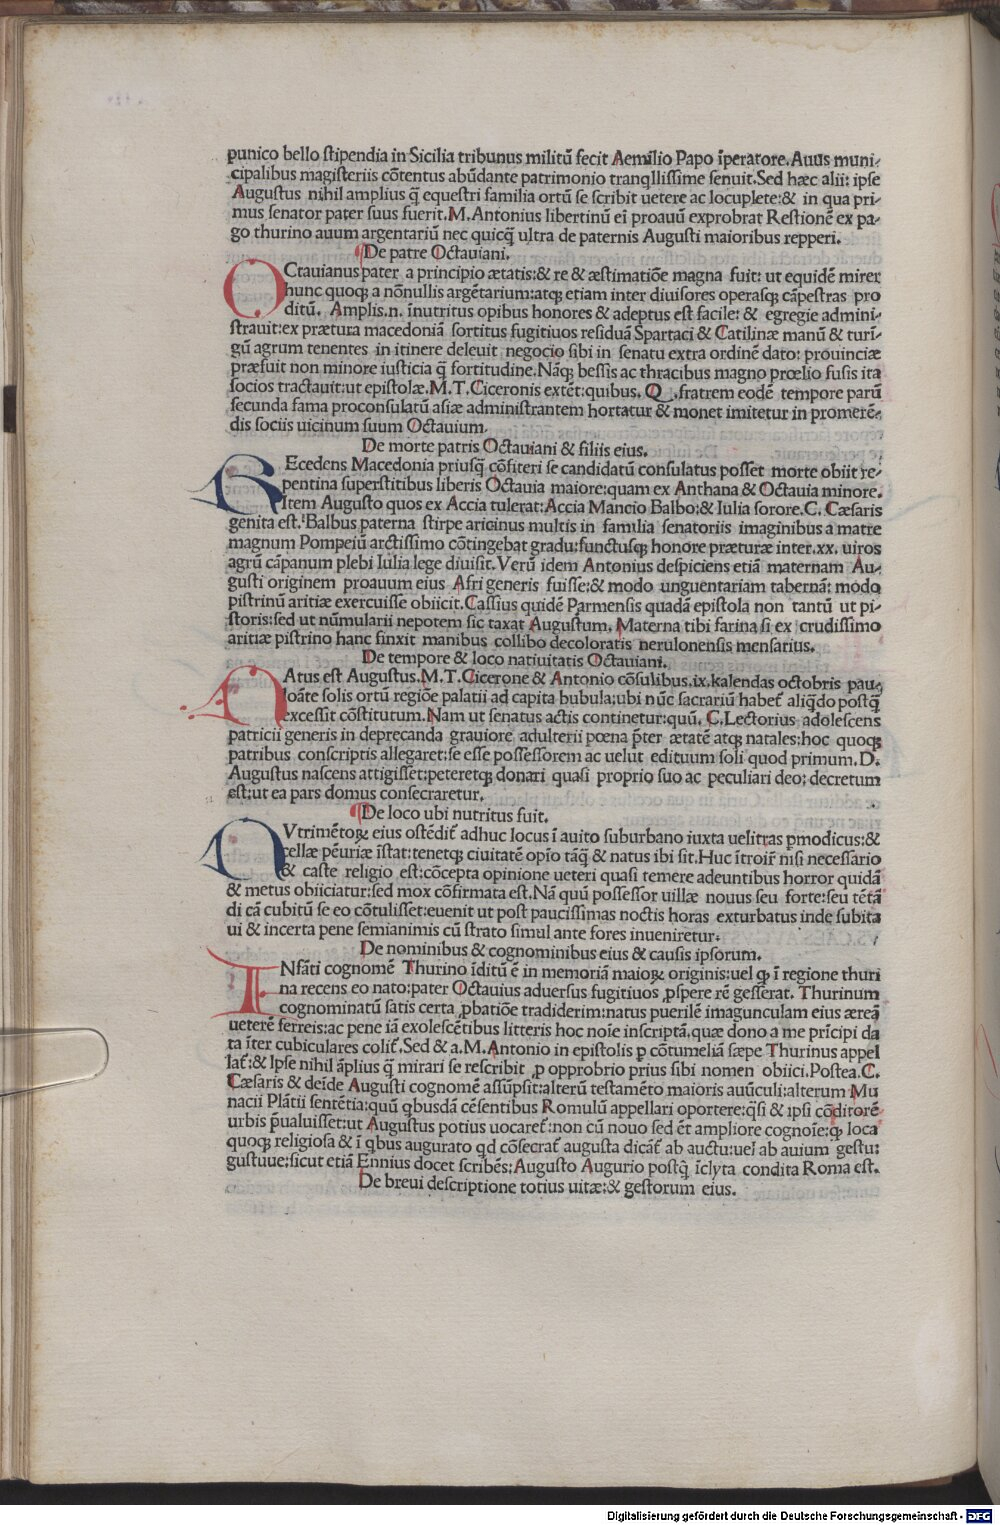 punico bello ſtipendia in Sicilia tribunus militū fecit Aemilio Papo īperatore. Auus muni-
cipalibus magiſteriis cōtentus abūdante patrimonio tranqlliſſime ſenuit. Sed hæc alii: ipſe
Auguſtus nihil amplius q̄ equeſtri familia ortū ſe ſcribit uetere ac locuplete: & in qua pri-
mus ſenator pater ſuus fuerit. M. Antonius libertinū ei proauū exprobrat Reſtionē ex pa-
go thurino auum argentariū nec quicq̄ ultra de paternis Auguſti maioribus repperi.
De patre Octauiani.
OCtauianus pater a principio ætatis: & re & æſtimatiōe magna fuit: ut equidē mirer
hunc quoqȝ a nōnullis argētarium: atqȝ etiam inter diuiſores operaſqȝ cāpeſtras pro
ditū. Amplis.n. īnutritus opibus honores & adeptus eſt facile: & egregie admini-
ſtrauit: ex prætura macedoniā ſortitus fugitiuos reſiduā Spartaci & Catilinæ manū & turī-
gū agrum tenentes in itinere deleuit negocio ſibi in ſenatu extra ordinē dato: prouinciæ
præfuit non minore iuſticia q̄ fortitudine. Nāqȝ beſſis ac thracibus magno prœlio fuſis ita
ſocios tractauit: ut epiſtolæ. M. T. Ciceronis extēt: quibus. Q. fratrem eodē tempore parū
ſecunda fama proconſulatū aſiæ adminiſtrantem hortatur & monet imitetur in promerē-
dis ſociis uicinum ſuum Octauium.
De morte patris Octauiani & filiis eius.
REcedens Macedonia priuſq̄ cōfiteri ſe candidatū conſulatus poſſet morte obiit re-
pentina ſuperſtitibus liberis Octauia maiore: quam ex Anthana & Octauia minore.
Item Auguſto quos ex Accia tulerat: Accia Mancio Balbo: & Iulia ſorore. C. Cæſaris
genita eſt. Balbus paterna ſtirpe aricinus multis in familia ſenatoriis imaginibus a matre
magnum Pompeiū arctiſſimo cōtingebat gradu: functuſqȝ honore præturæ inter. xx. uiros
agrū cāpanum plebi Iulia lege diuiſit. Verū idem Antonius deſpiciens etiā maternam Au-
guſti originem proauum eius Afri generis fuiſſe: & modo unguentariam tabernā: modo
piſtrinū aritiæ exercuiſſe obiicit. Caſſius quidē Parmenſis quadā epiſtola non tantū ut pi-
ſtoris: ſed ut nūmularii nepotem ſic taxat Auguſtum. Materna tibi farina ſi ex crudiſſimo
aritiæ piſtrino hanc finxit manibus collibo decoloratis nerulonenſis menſarius.
De tempore & loco natiuitatis Octauiani.
NAtus eſt Auguſtus. M. T. Cicerone & Antonio cōſulibus. ix. kalendas octobris pau-
loāte ſolis ortū regiōe palatii ad capita bubula: ubi nūc ſacrariū habet̄ aliq̄do poſtq̄
exceſſit cōſtitutum. Nam ut ſenatus actis continetur: quū. C. Lectorius adoleſcens
patricii generis in deprecanda grauiore adulterii pœna p̄ter ætatē atqȝ natales: hoc quoqȝ
patribus conſcriptis allegaret: ſe eſſe poſſeſſorem ac uelut edituum ſoli quod primum. D.
Auguſtus naſcens attigiſſet: peteretqȝ donari quaſi proprio ſuo ac peculiari deo: decretum
eſt: ut ea pars domus conſecraretur.
De loco ubi nutritus fuit.
NVtrimētoꝝ eius oſtēdit̄ adhuc locus ī auito ſuburbano iuxta uelitras p̄modicus: &
cellæ pēuriæ īſtat: tenetqȝ ciuitatē opīo tāq̄ & natus ibi ſit. Huc ītroir̄ niſi neceſſario
& caſte religio eſt: cōcepta opinione ueteri quaſi temere adeuntibus horror quidā
& metus obiiciatur: ſed mox cōfirmata eſt. Nā quū poſſeſſor uillæ nouus ſeu forte: ſeu tētā
di cā cubitū ſe eo cōtuliſſet: euenit ut poſt pauciſſimas noctis horas exturbatus inde ſubita
ui & incerta pene ſemianimis cū ſtrato ſimul ante fores inueniretur.
De nominibus & cognominibus eius & cauſis ipſorum.
INfāti cognomē Thurino īditū ē in memoriā maioꝝ originis: uel qꝫ ī regione thuri
na recens eo nato: pater Octauius aduerſus fugitiuos ꝓſpere rē geſſerat. Thurinum
cognominatū ſatis certa ꝓbatiōe tradiderim: natus puerilē imagunculam eius æreā
ueterē ferreis: ac pene iā exoleſcētibus litteris hoc noīe inſcriptā, quæ dono a me prīcipi da
ta īter cubiculares colit̄. Sed & a. M. Antonio in epiſtolis ꝑ cōtumeliā ſæpe Thurinus appel
lat̄: & Ipſe nihil āplius q̄ mirari ſe reſcribit ꝓ opprobrio prius ſibi nomen obiici. Poſtea. C.
Cæſaris & deīde Auguſti cognomē aſſūpſit: alterū teſtamēto maioris auūculi: alterum Mu
nacii Plātii ſentētia: quū qbuſdā cēſentibus Romulū appellari oportere: q̄ſi & ipſi cōditorē
urbis p̄ualuiſſet: ut Auguſtus potius uocaret̄: non cū nouo ſed ēt ampliore cognoīe: qꝫ loca
quoqȝ religioſa & ī qbus augurato qd cōſecrat̄ auguſta dicāt̄ ab auctu: uel ab auium geſtu:
guſtuue: ſicut etiā Ennius docet ſcribēs: Auguſto Augurio poſtq̄ īclyta condita Roma eſt.
De breui deſcriptione totius uitæ: & geſtorum eius.
Digitalisierung gefördert durch die Deutsche Forschungsgemeinschaft - DFG